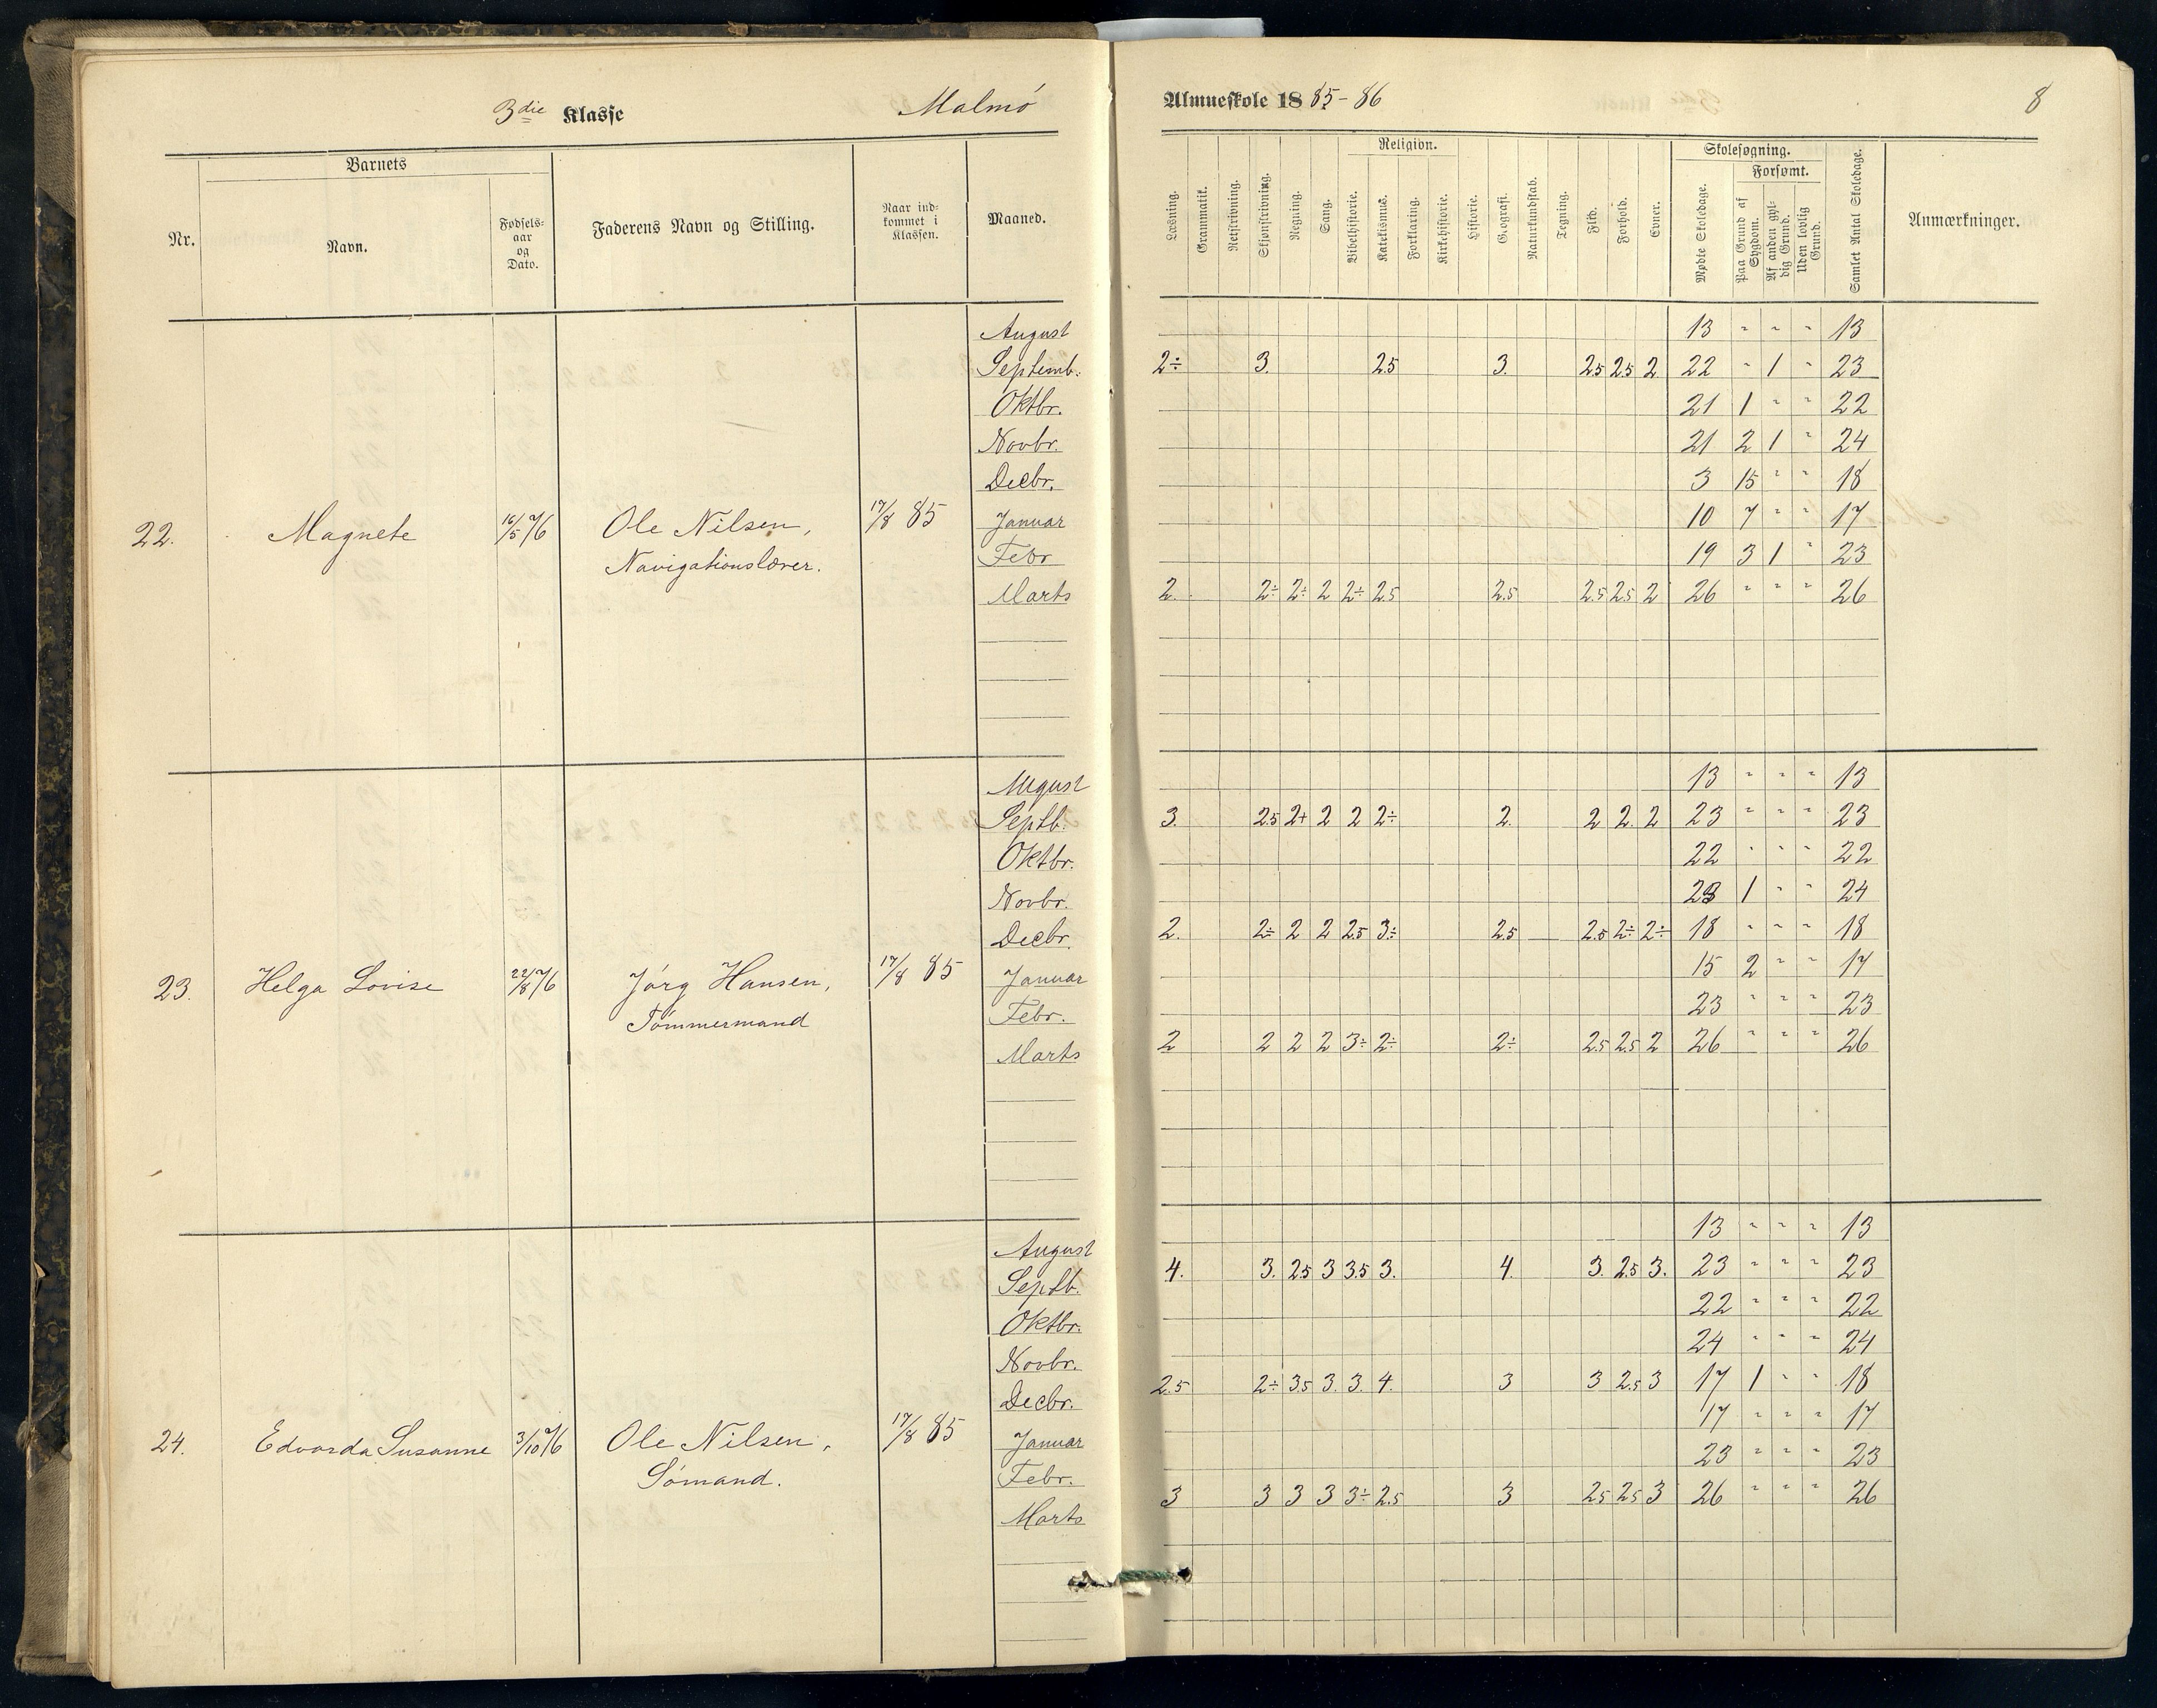 3die Klasse Malmö Almueskole 1885-86 8
Barnets
Nr.
Navn.
Fødsels-
aar
og
Dato.
Faderens Navn og Stilling.
Naar ind-
kommet i
Klassen.
Maaned.
Læsning.
Grammatik.
Retskrivning.
Skjønskrivning.
Regning.
Sang.
Religion.
Bibelhistorie.
Katekismus.
Forklaring.
Kirkehistorie.
Historie.
Geografi.
Naturkundskab.
Tegning.
Flid.
Forhold.
Evner.
Skolesøgning.
Mødte Skoledage.
Forsømt.
Paa Grund af
Sygdom.
Af anden gyl-
dig Grund.
Uden lovlig
Grund.
Samlet Antal Skoledage.
Anmærkninger.
22. Magnete 16/5 76 Ole Nilsen,
Navigationslærer.
17/8 85
August 13 " " " 13
Septemb. 2÷ 3. 2.5 3. 2.5 2.5 2. 22 " 1 " 23
Oktbr. 21 1 " " 22
Novbr. 21 2 1 " 24
Decbr. 3 15 " " 18
Januar 10 7 " " 17
Febr 19 3 1 " 23
Marts 2. 2÷ 2÷ 2 2÷ 2.5 2.5 2.5 2.5 2 26 " " " 26
23. Helga Lovise 22/8 76 Jörg Hansen,
Tömmermand
17/8 85
August 13 " " " 13
Septb. 3. 2.5 2+ 2 2 2÷ 2. 2 2. 2 23 " " " 23
Oktbr. 22 " " " 22
Novbr. 23 1 " " 24
Decbr. 2. 2÷ 2 2 2.5 3÷ 2.5 2.5 2÷ 2÷ 18 " " " 18
Januar 15 2 " " 17
Febr. 23 " " " 23
Marts 2 2 2 2 3÷ 2÷ 2÷ 2.5 2.5 2 26 " " " 26
24. Edvarda Susanne 3/10 76 Ole Nilsen,
Sömand.
17/8 85
August 13 " " " 13
Septb. 4. 3. 2.5 3 3.5 3. 4. 3. 2.5 3. 23 " " " 23
Oktbr. 22 " " " 22
Novbr. 24 " " " 24
Decbr. 2.5 2÷ 3.5 3. 3. 4. 3 3 2.5 3 17 1 " " 18
Januar 17 " " " 17
Febr. 23 " " " 23
Marts 3 3 3 3 3÷ 2.5 3 2.5 2.5 3 26 " " " 26